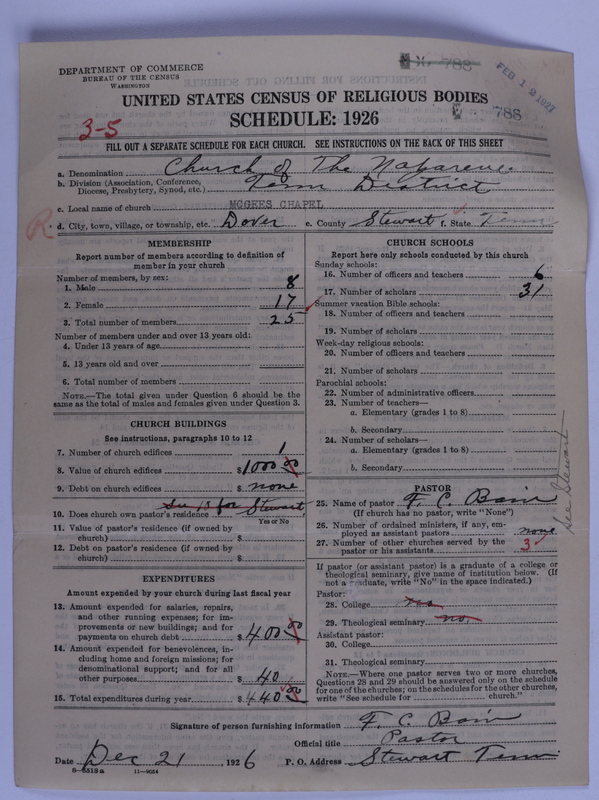 DEPARTMENT OF COMMERCE
BUREAU OF THE CENSUS
WASHINGTON
788
FEB 12 1927
UNITED STATES CENSUS OF RELIGIOUS BODIES
SCHEDULE: 1926
788
3-5
FILL OUT A SEPARATE SCHEDULE FOR EACH CHURCH. SEE INSTRUCTIONS ON THE BACK OF THIS SHEET
a. Denomination Church of The Nazarene
b. Division (Association, Conference, Diocese, Presbytery, Synod, etc.) Tenn District
c. Local name of church MCGEES CHAPEL
R. d. City, town, village, or township, etc. Dover e. County Stewart f. State Tenn
MEMBERSHIP
Report number of members according to definition of member in your church
Number of members, by sex:
1. Male 8
2. Female 17
3. Total number of members 25
Number of members under and over 13 years old:
4. Under 13 years of age
5. 13 years old and over
6. Total number of members
NOTE.—The total given under Question 6 should be the same as the total of males and females given under Question 3.
CHURCH BUILDINGS
See instructions, paragraphs 10 to 12
7. Number of church edifices 1
8. Value of church edifices $1000 00
9. Debt on church edifices $ none
10. Does church own pastor's residence? See 13 for Stewart
Yes or No
11. Value of pastor's residence (if owned by church) $
12. Debt on pastor's residence (if owned by church) $
EXPENDITURES
Amount expended by your church during last fiscal year
13. Amount expended for salaries, repairs, and other running expenses; for improvements or new buildings; and for payments on church debt $ 400 00
14. Amount expended for benevolences, including home and foreign missions; for denominational support; and for all other purposes $ 40
15. Total expenditures during year $ 440 00
CHURCH SCHOOLS
Report here only schools conducted by this church
Sunday schools:
16. Number of officers and teachers 6
17. Number of scholars 31
Summer vacation Bible schools:
18. Number of officers and teachers
19. Number of scholars
Week-day religious schools:
20. Number of officers and teachers
21. Number of scholars
Parochial schools:
22. Number of administrative officers
23. Number of teachers—
a. Elementary (grades 1 to 8)
b. Secondary
24. Number of scholars—
a. Elementary (grades 1 to 8)
b. Secondary
see Stewart
PASTOR
25. Name of pastor F. C. Bain
(If church has no pastor, write "None")
26. Number of ordained ministers, if any, employed as assistant pastors none
27. Number of other churches served by the pastor or his assistants 3
If pastor (or assistant pastor) is a graduate of a college or theological seminary, give name of institution below. (If not a graduate, write "No" in the space indicated.)
Pastor:
28. College no
29. Theological seminary no
Assistant pastor:
30. College
31. Theological seminary
NOTE.—Where one pastor serves two or more churches, Questions 28 and 29 should be answered only on the schedule for one of the churches; on the schedules for the other churches, write "See schedule for church."
Signature of person furnishing information F. C. Bain
Official title Pastor
Date Dec 21 1926 P. O. Address Stewart Tenn
8-5518a 11-9024